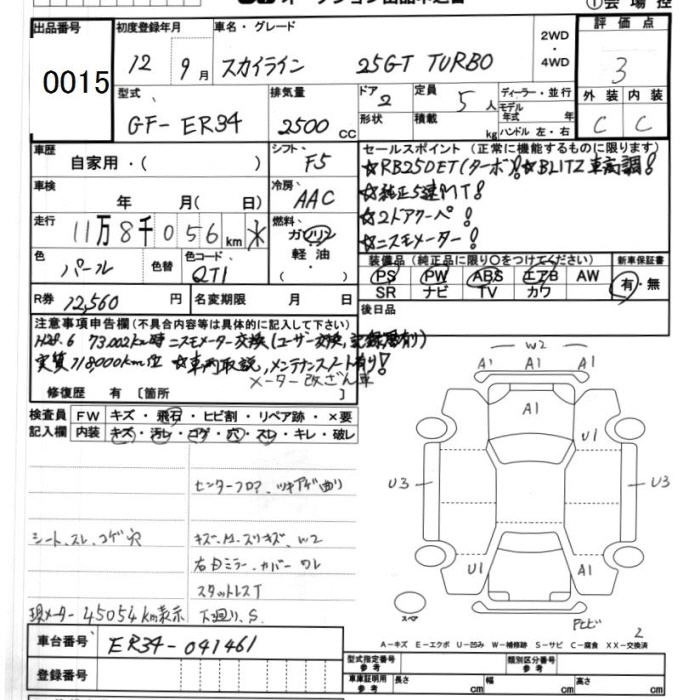 出品番号
0015
初度登録年月
12 9月
車名・グレード
スカイライン 25GT TURBO
2WD・4WD
評価点
3
型式
GF-ER34
排気量
2500 CC
ドア
2
定員
5人
形状
積載
kg
ディーラー・並行
モデル年式 年
ハンドル 左・右
外装 内装
C C
車歴
自家用・(
シフト
F5
車検
年 月( 日)
冷房
AAC
走行
11万8千056km
燃料
ガソリン
軽油
・( )
色
パール
色替
色コード
QT1
R券
12,560 円
名変期限 月 日
セールスポイント(正常に機能するものに限ります)
☆RB25DET(ターボ)!☆BLITZ車高調!
☆純正5速MT!
☆2ドアクーペ!
☆ニスモメーター!
装備品(純正品に限り○をつけてください)
PS PW ABS エアB AW
SR ナビ TV カワ
新車保証書
有・無
後日品
注意事項申告欄(不具合内容等は具体的に記入して下さい)
H28.6 73,002km時ニスモメーター交換(ユーザー交換,記録簿有り)
実質118,000km位 ☆車両取説,メンテナンスノート有り!
メーター改ざん車
修復歴 有 [箇所
検査員記入欄
FW キズ・飛石・ヒビ割・リペア跡・×要
内装 キズ・汚レ・コゲ・穴・スレ・キレ・破レ
センターフロア、ツキアゲ曲り
シート、スレ、コゲ穴
キズ、A、スリキズ、W2
右ドミラーカバーワレ
スタットレスT
現メーター45054km表示
下廻り、S.
W2
A1 A1 A1
A1
U1
U3
U3
U1
A1
スペア
2
A-キズ E-エクボ U-凹み W-補修跡 S-サビ C-腐食 XX-交換済
車台番号
ER34-041461
登録番号
型式指定番号
参考
類別区分番号
参考
車庫証明用
参考
長さ cm
幅 cm
高さ cm